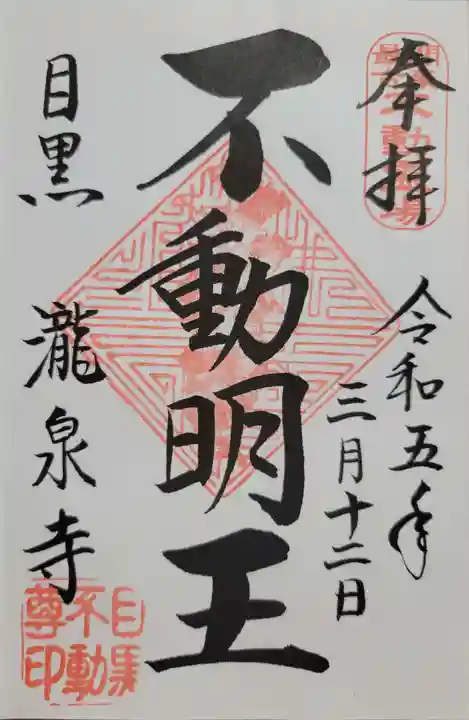 奉拝
令和五年
三月十二日
不動明王
目黒 瀧泉寺
目黒
不動
尊印